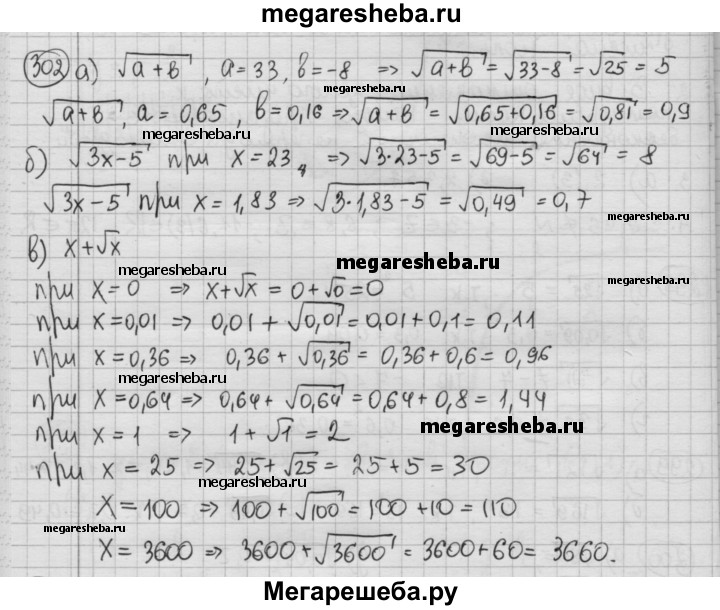 megaresheba.ru
302 а) √(a+b), a=33, b=-8 ⇒ √(a+b) = √(33-8) = √25 = 5
megaresheba.ru
√(a+b), a=0,65, b=0,16 ⇒ √(a+b) = √(0,65+0,16) = √0,81 = 0,9
megaresheba.ru megaresheba.ru
б) √(3x-5) при x=23, ⇒ √(3·23-5) = √(69-5) = √64 = 8
√(3x-5) при x=1,83 ⇒ √(3·1,83-5) = √0,49 = 0,7
megaresheba.ru megaresheba.ru
в) x+√x
megaresheba.ru
при x=0 ⇒ x+√x = 0+√0 = 0
megaresheba.ru
при x=0,01 ⇒ 0,01+√0,01 = 0,01+0,1 = 0,11
при x=0,36 ⇒ 0,36+√0,36 = 0,36+0,6 = 0,96
megaresheba.ru megaresheba.ru
при x=0,64 ⇒ 0,64+√0,64 = 0,64+0,8 = 1,44
при x=1 ⇒ 1+√1 = 2
megaresheba.ru
при x=25 ⇒ 25+√25 = 25+5 = 30
megaresheba.ru
x=100 ⇒ 100+√100 = 100+10 = 110
megaresheba.ru
x=3600 ⇒ 3600+√3600 = 3600+60 = 3660.
Мегарешеба.ру